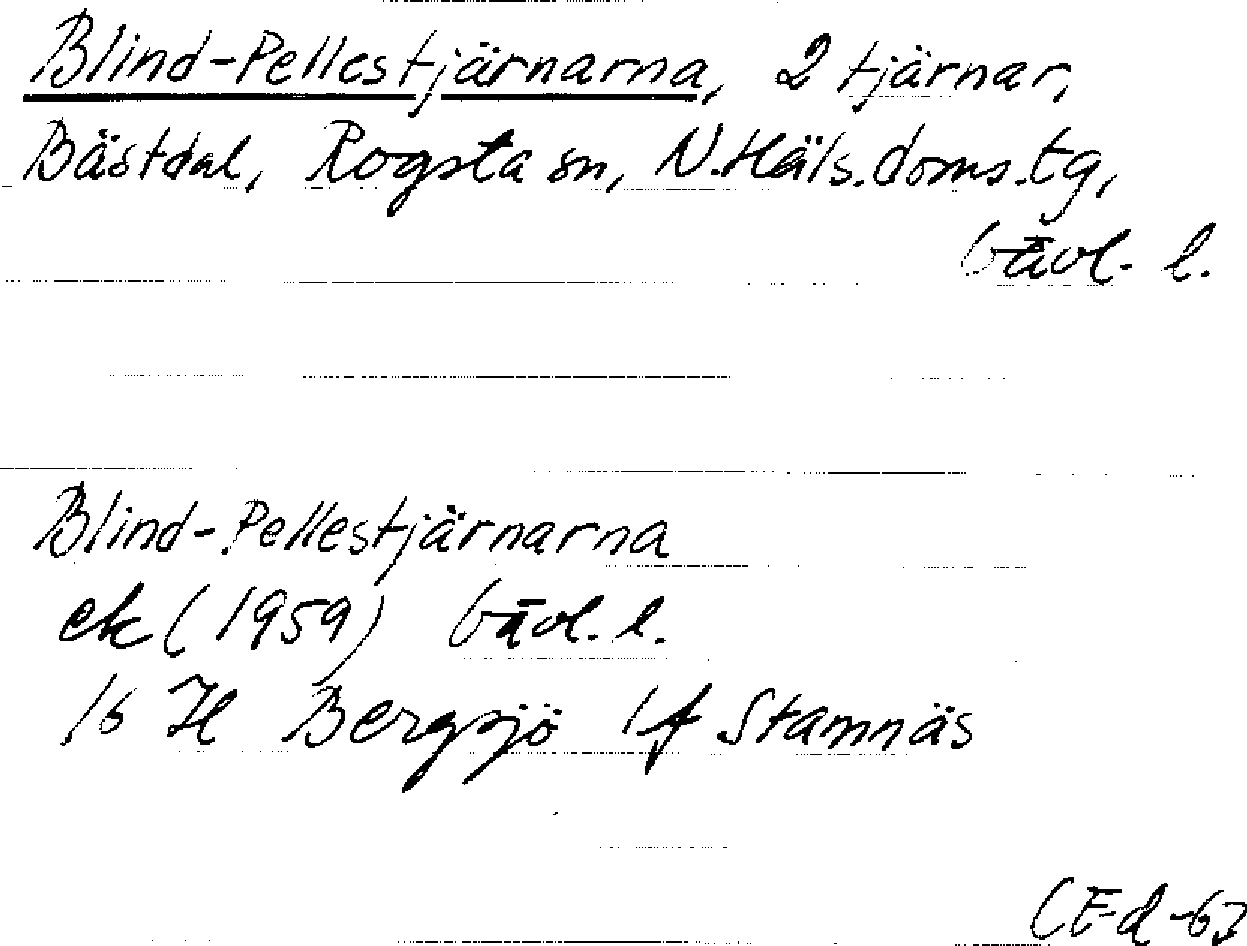 Blind-Pellestjärnarna, 2 tjärnar,
Bästdal, Rogsta sn, N.Häls.doms.tg,
Gävl. l.
Blind-Pellestjärnarna
ek (1959) Gävl. l.
16 H Bergsjö 1f Stamnäs